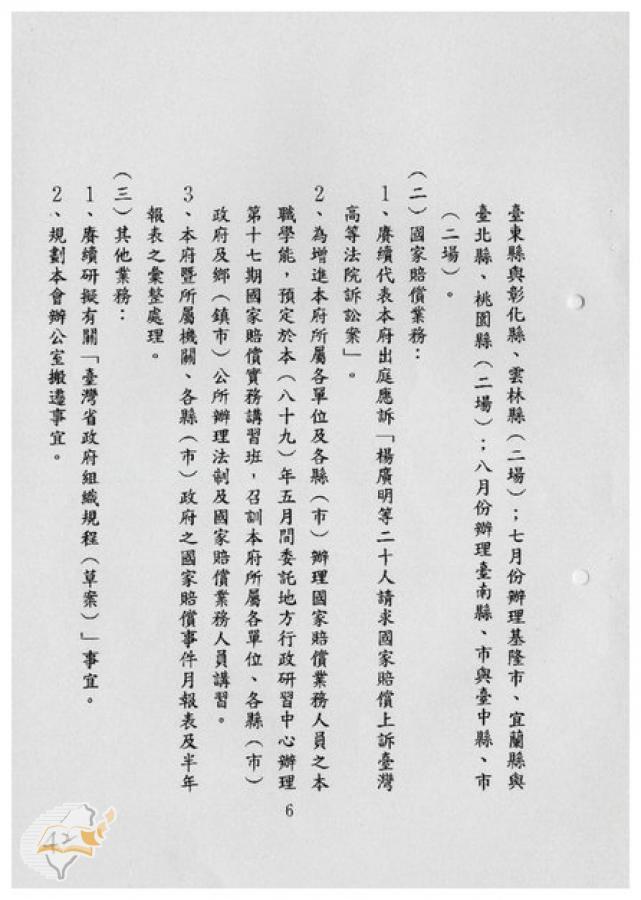 臺東縣與彰化縣、雲林縣（二場）；七月份辦理基隆市、宜蘭縣與
臺北縣、桃園縣（二場）；八月份辦理臺南縣、市與臺中縣、市
（二場）。
（二）國家賠償業務：
1、賡續代表本府出庭應訴「楊廣明等二十人請求國家賠償上訴臺灣
高等法院訴訟案」。
2、為增進本府所屬各單位及各縣（市）辦理國家賠償業務人員之本
職學能，預定於本（八十九）年五月間委託地方行政研習中心辦理
第十七期國家賠償實務講習班，召訓本府所屬各單位、各縣（市）
政府及鄉（鎮市）公所辦理法制及國家賠償業務人員講習。
3、本府暨所屬機關、各縣（市）政府之國家賠償事件月報表及半年
報表之彙整處理。
（三）其他業務：
1、賡續研擬有關「臺灣省政府組織規程（草案）」事宜。
2、規劃本會辦公室搬遷事宜。
6